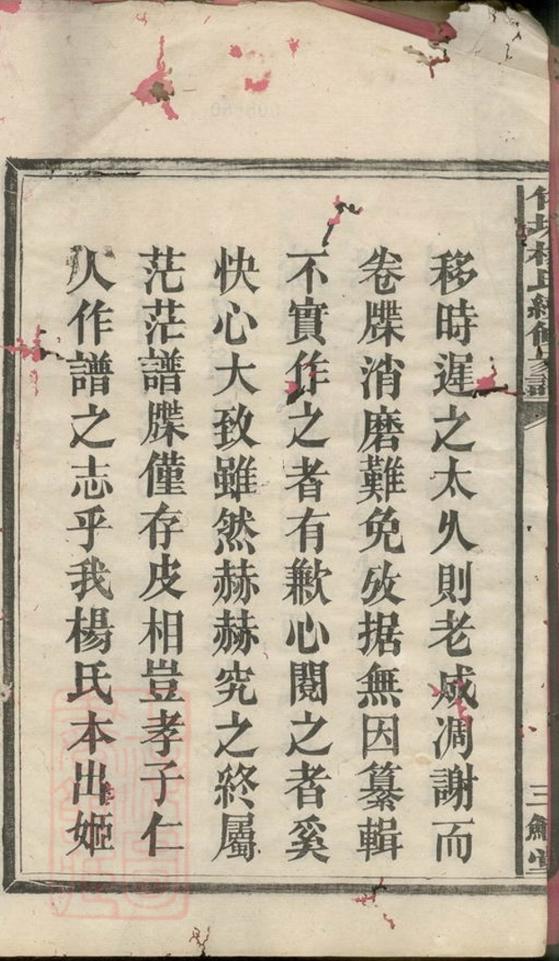 楊氏續修家譜
三鱣堂
移時遲之太久則老成凋謝而
卷牒消磨難免攷据無因纂輯
不實作之者有歉心閱之者奚
快心大致雖然赫赫究之終屬
茫茫譜牒僅存皮相豈孝子仁
人作譜之志乎我楊氏本出姬